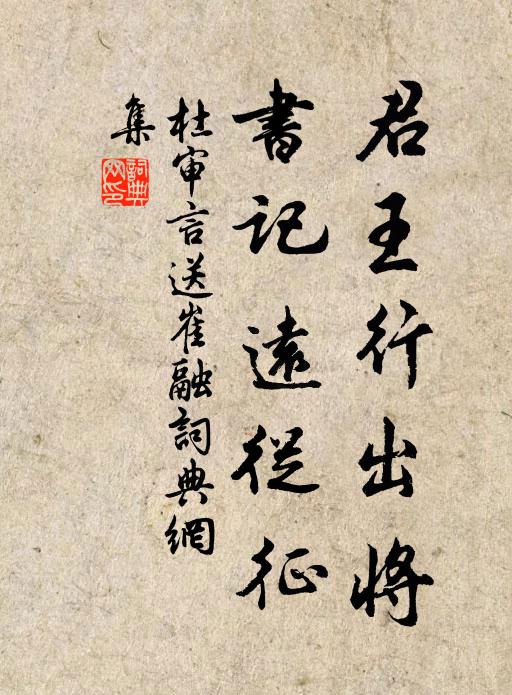 君王行出將
書記遠從征
杜审言送崔融詞典網
集
詞典
网印